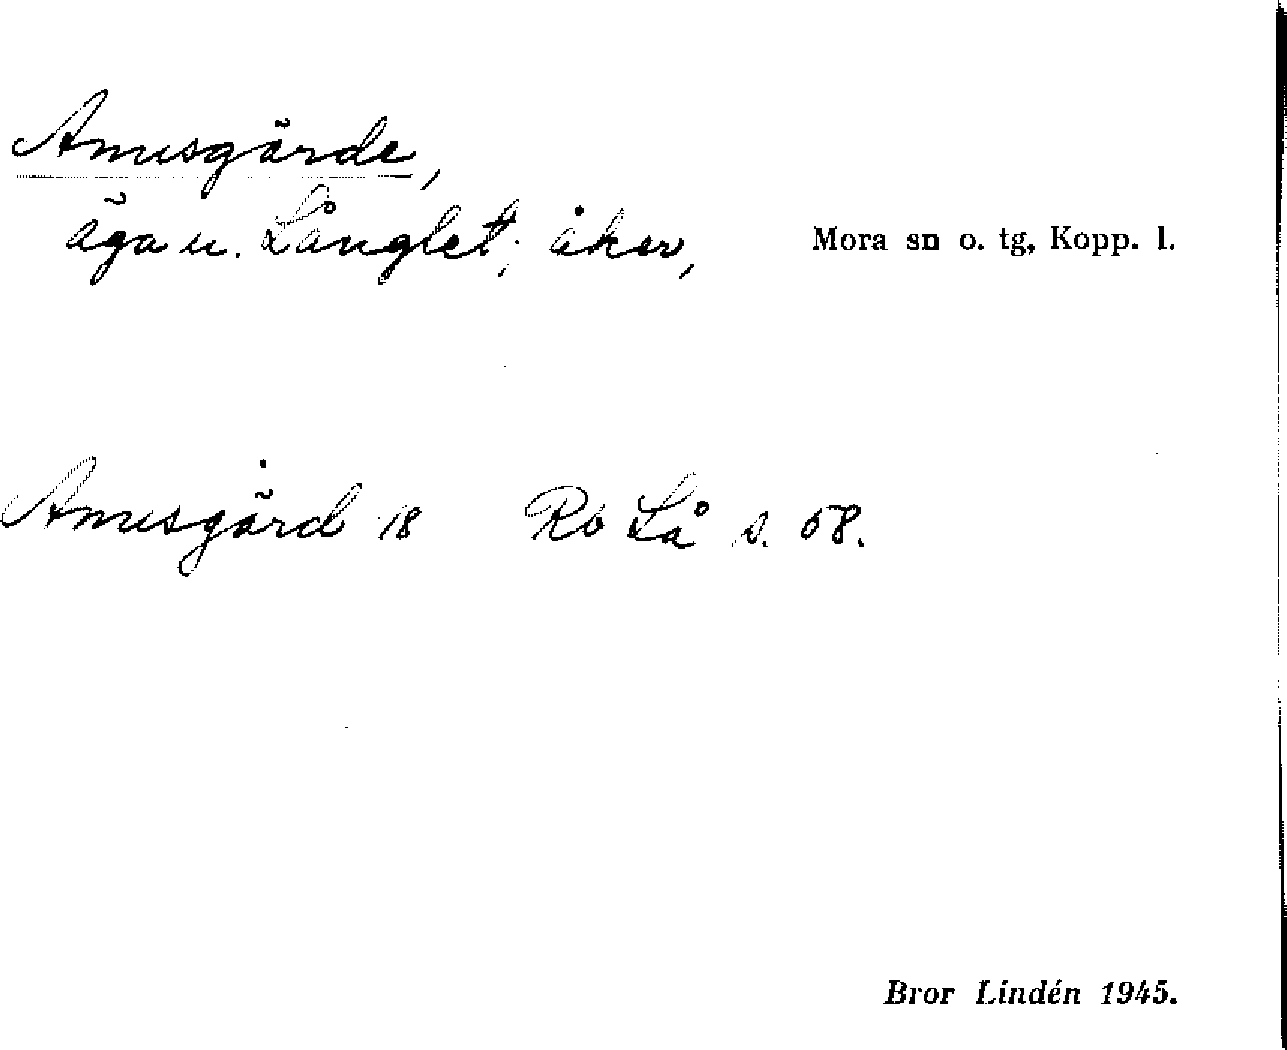 Amusgärde,
äga u. Långlet; åker,
Mora sn o. tg, Kopp. l.
Amusgärd 18 Rb Lå s. 58.
Bror Lindén 1945.